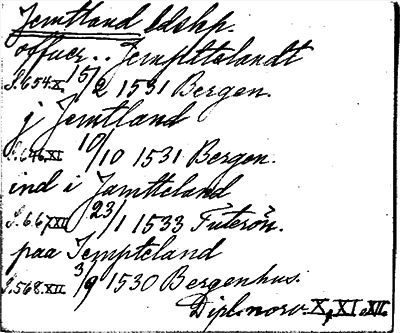 Jemtland ldskp.
offuer.. Jempttelandt
S.654.X. 15/2 1531 Bergen.
j Jemtland
S.646.XI 10/10 1531 Bergen.
ind i Jamtteland
S.667.XII 23/1 1533 Futerön.
paa Jempteland
S.568.XII 3/9 1530 Bergenhus.
Dipl. norv. X, XI, XII.